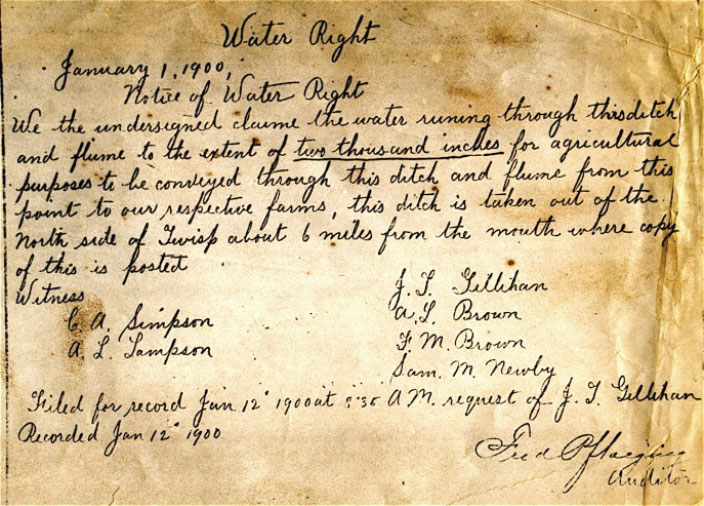 Water Right
January 1, 1900,
Notice of Water Right
We the undersigned claime the water runing through this ditch
and flume to the extent of two thousand inches for agricultural
purposes to be conveyed through this ditch and flume from this
point to our respective farms, this ditch is taken out of the
North side of Twisp about 6 miles from the mouth where copy
of this is posted
Witness
C. A. Simpson
A. L. Sampson
J. T. Gillihan
A. L. Brown
F. M. Brown
Sam. M. Newby
Filed for record Jan 12" 1900 at A M. request of J. T. Gillihan
Recorded Jan 12" 1900
Fred
Auditor